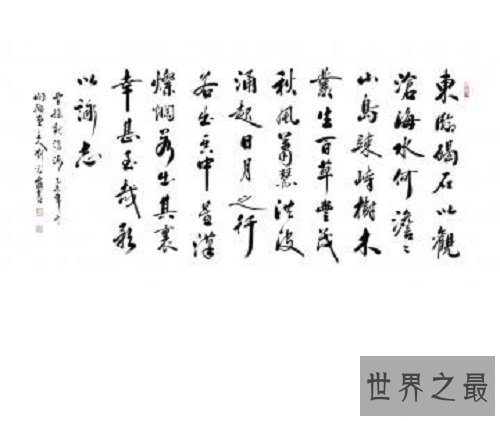 東臨碣石以觀
滄海水何澹々
山島竦峙樹木
叢生百草豐茂
秋風蕭瑟洪波
涌起日月之行
若出其中星漢
燦爛若出其裏
幸甚至哉歌
以詠志
曹操觀滄海
世界之最